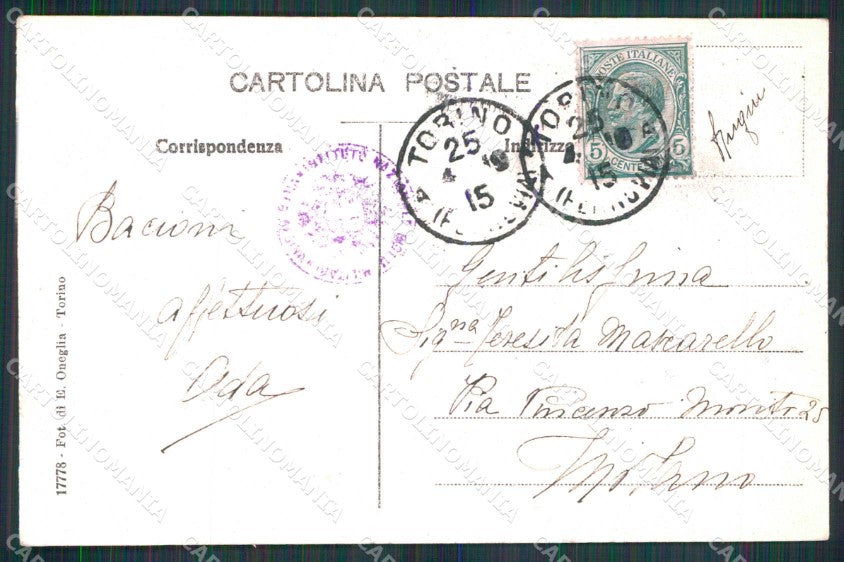 CARTOLINA POSTALE
Corrispondenza
Indirizzo
POSTE ITALIANE
5 CENTES 5
TORINO
25
15
TORINO
25
15
Bacioni
affettuosi
Ada
Gentilissima
Sig.na Teresita Mascarello
Via Vincenzo Monti 25
Milano
17778 - Fot. di E. Oneglia - Torino
CARTOLINOMANIA